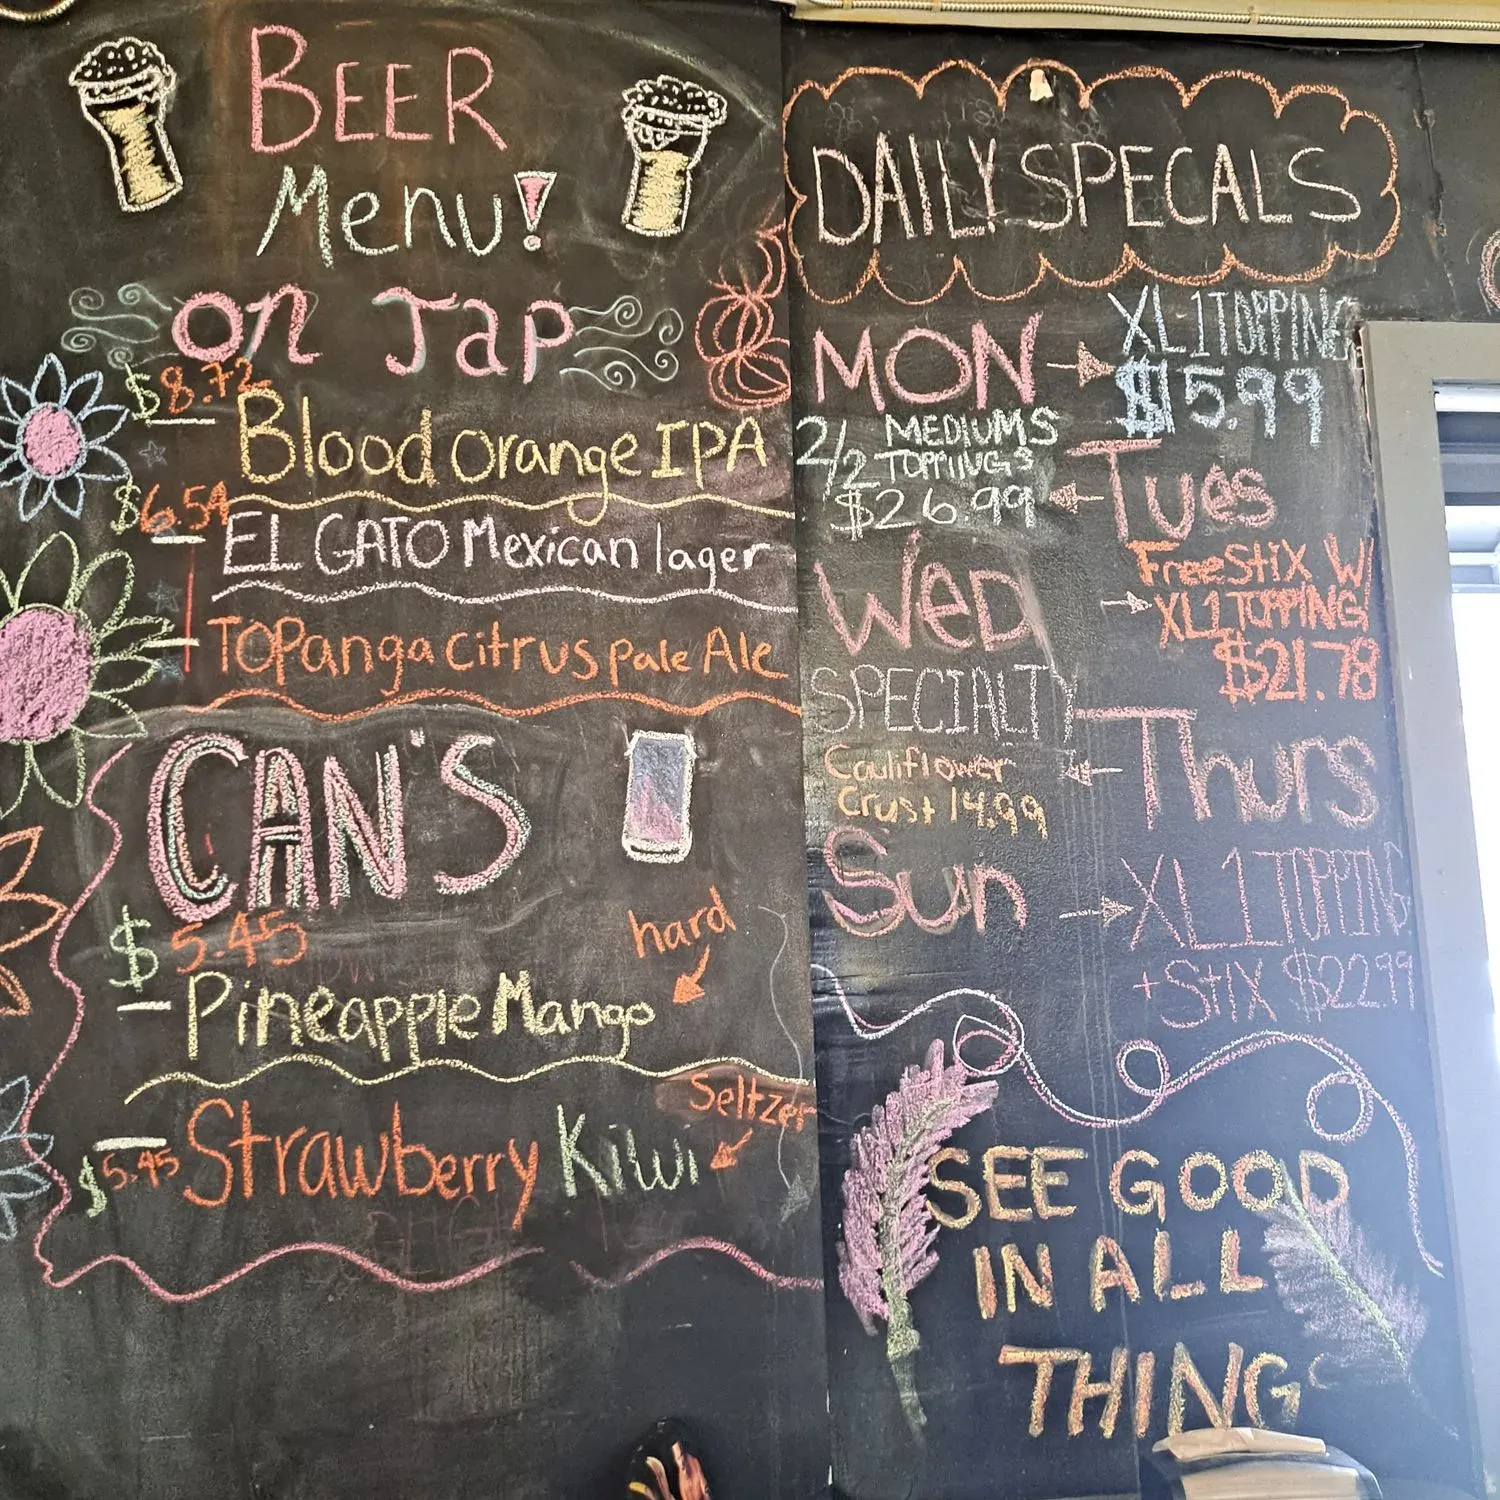 BEER
Menu!
on Tap
$8.72
Blood orange IPA
$6.54
EL GATO Mexican lager
TOPanga citrus pale Ale
CAN'S
$5.45
Pineapple Mango
hard
Seltzer
$5.45 Strawberry Kiwi
DAILY SPECALS
MON
XL 1 TOPPING
$15.99
Tues
2/2 MEDIUMS
TOPPINGS
$26.99
WeD
Free StiX W/
XL 1 TOPPING
$21.78
Thurs
SPECIALTY
Cauliflower
Crust 14.99
Sun
XL 1 TOPPING
+ StiX $22.99
SEE GOOD
IN ALL
THING